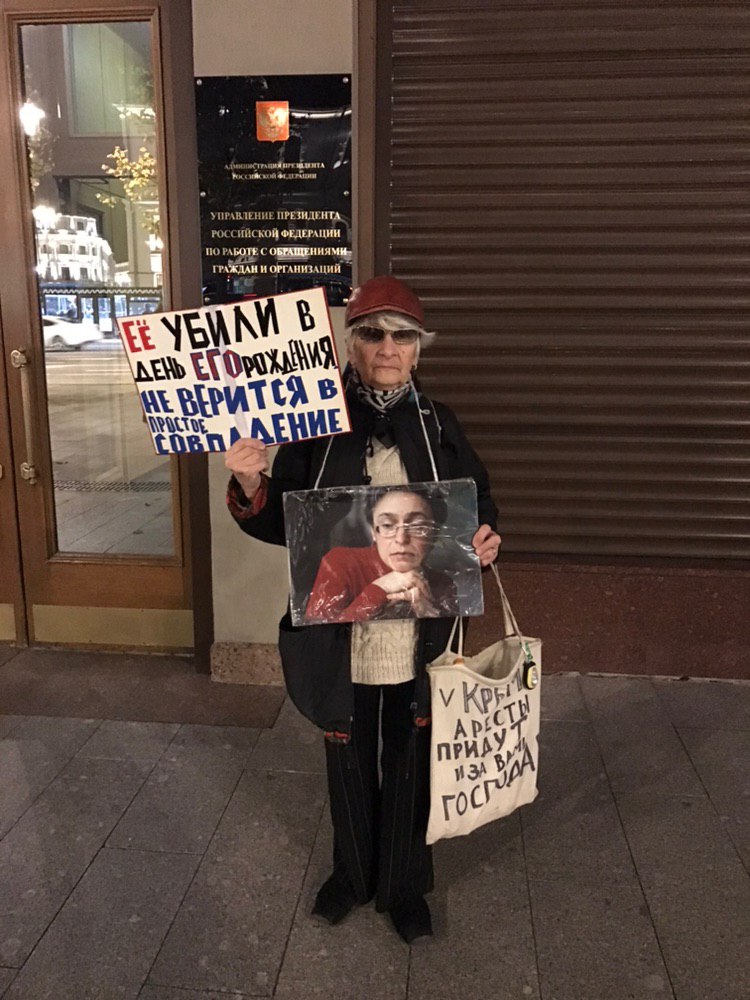 АДМИНИСТРАЦИЯ ПРЕЗИДЕНТА
РОССИЙСКОЙ ФЕДЕРАЦИИ
УПРАВЛЕНИЕ ПРЕЗИДЕНТА
РОССИЙСКОЙ ФЕДЕРАЦИИ
ПО РАБОТЕ С ОБРАЩЕНИЯМИ
ГРАЖДАН И ОРГАНИЗАЦИЙ
ЕЁ УБИЛИ В
ДЕНЬ ЕГО РОЖДЕНИЯ
НЕ ВЕРИТСЯ В
ПРОСТОЕ
СОВПАДЕНИЕ
V КРЫМУ
АРЕСТЫ
ПРИДУТ
И ЗА ВАМИ
ГОСПОДА